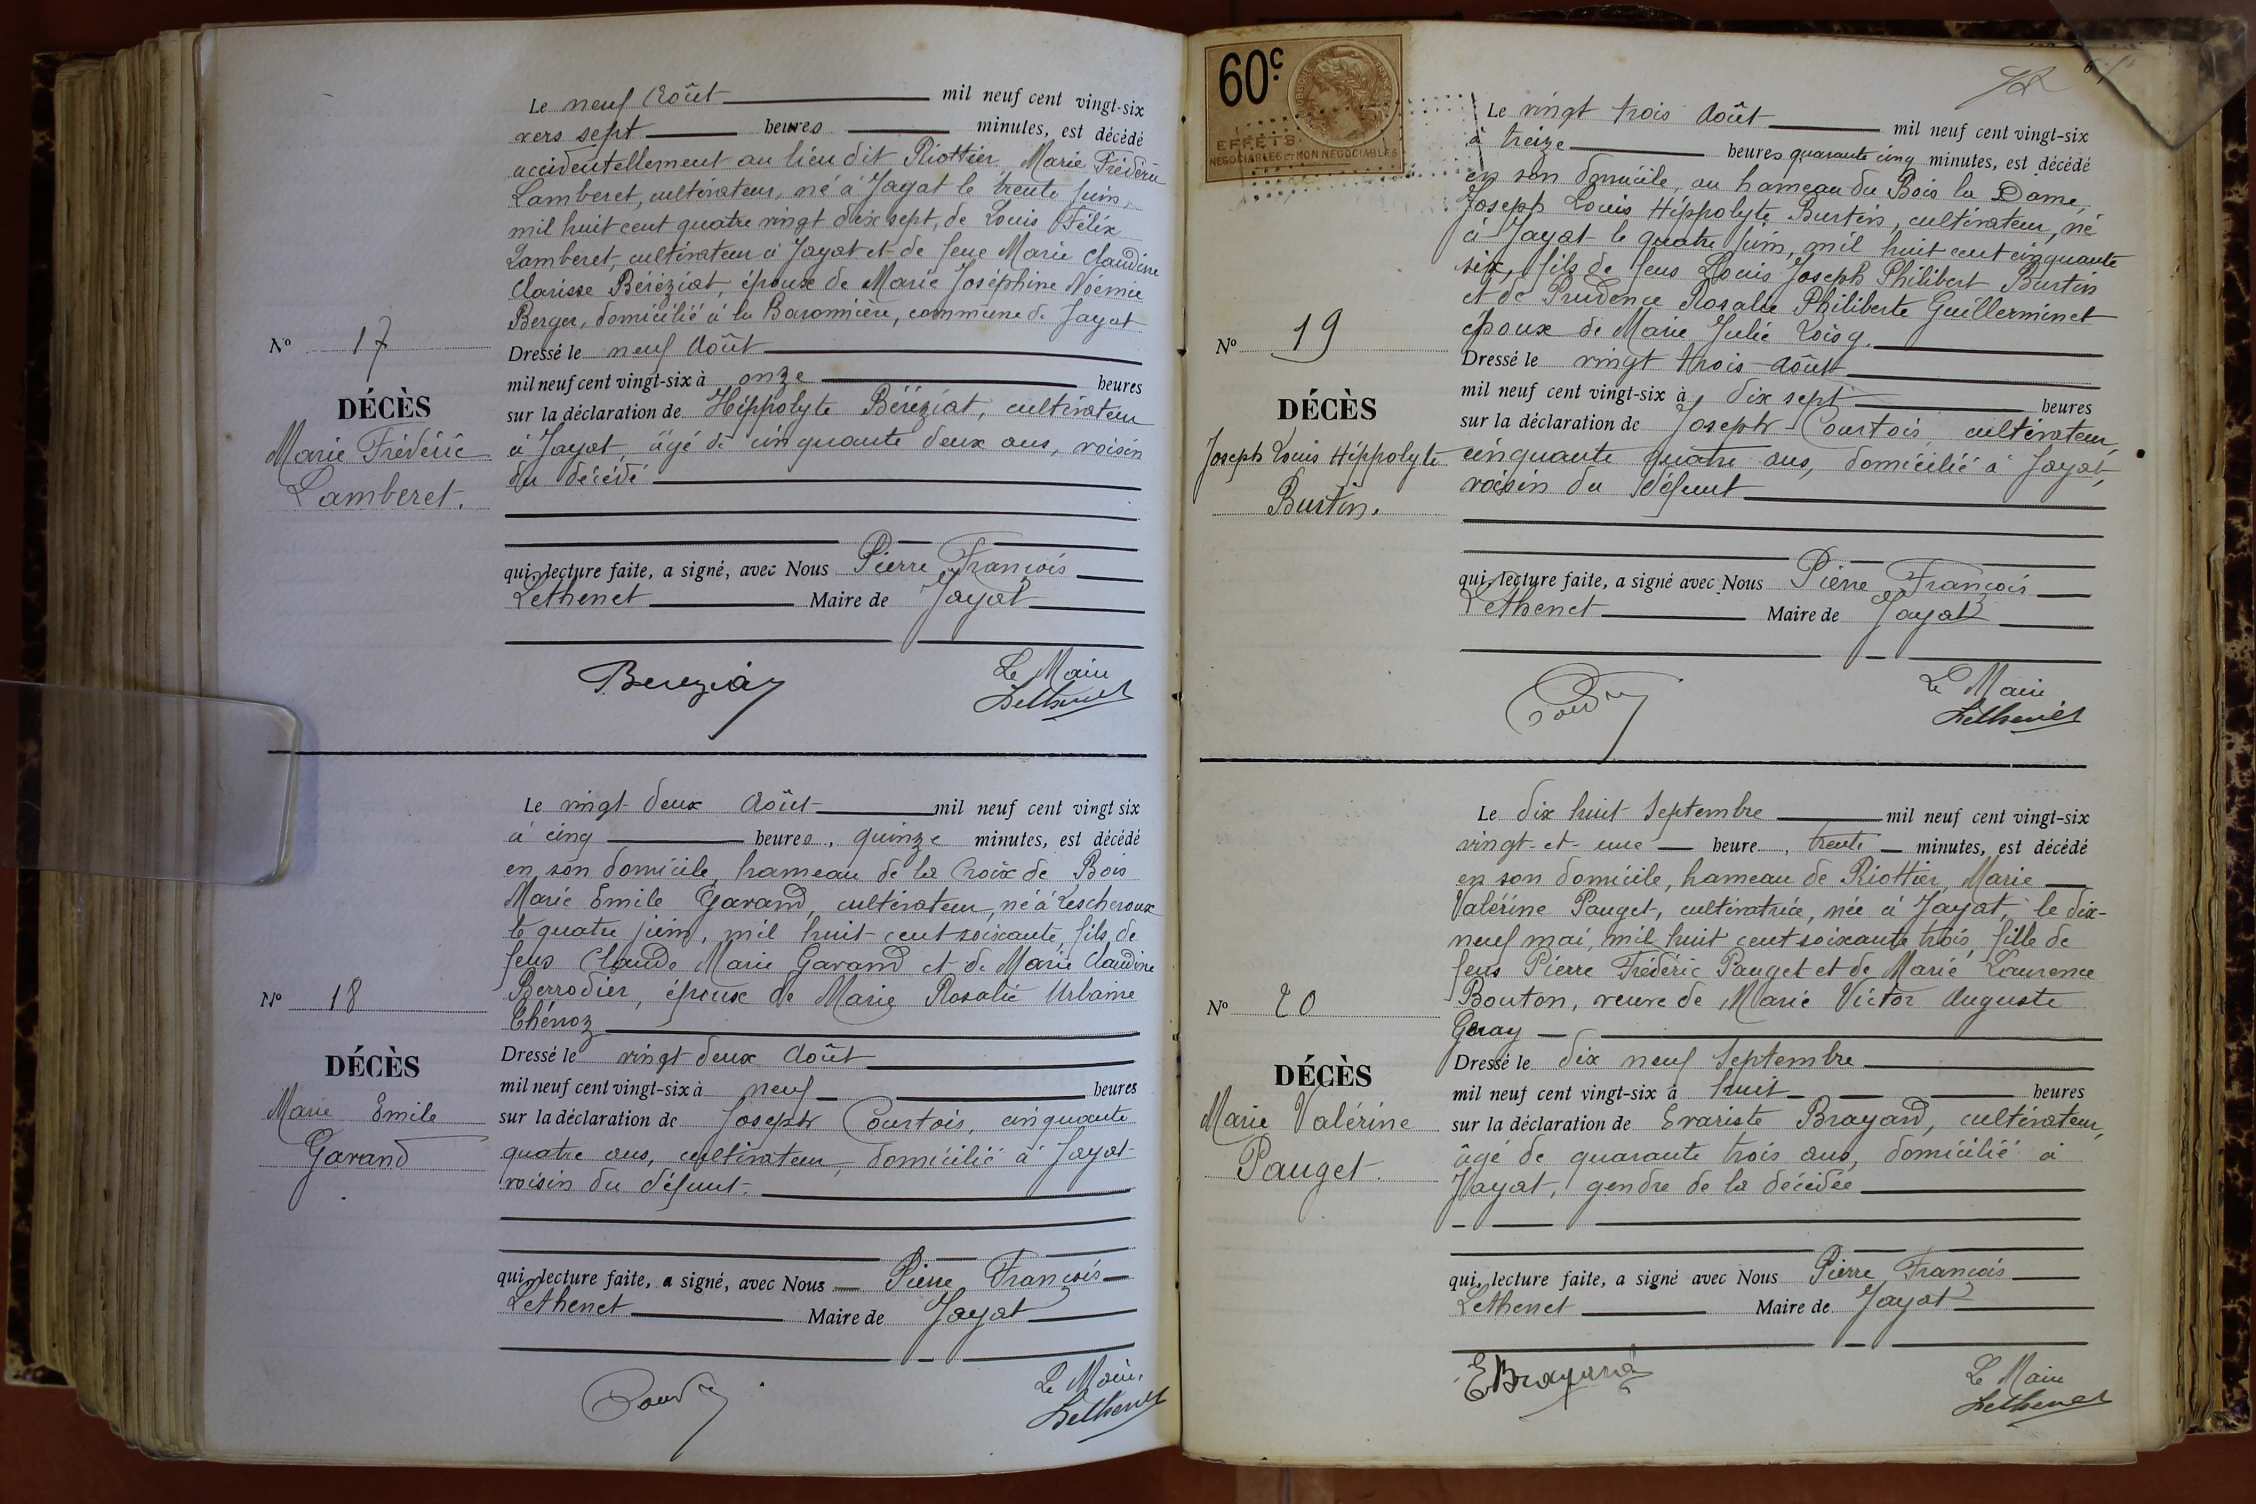 Le neuf Août mil neuf cent vingt-six
vers sept heures minutes, est décédé
accidentellement au lieu dit Riottier, Marie Frédéric
Lamberet, cultivateur, né à Jayat le trente juin,
mil huit cent quatre vingt dix sept, de Louis Félix
Lamberet, cultivateur à Jayat et de feue Marie Claudine
Clarisse Béréziat, époux de Marie Joséphine Noémie
Berger, domicilié à la Baronnière, commune de Jayat
Nº 17
Dressé le neuf Août
mil neuf cent vingt-six à onze heures
DÉCÈS
sur la déclaration de Hippolyte Béréziat, cultivateur
Marie Frédéric
à Jayat, âgé de cinquante deux ans, voisin
Lamberet.
du décédé
qui, lecture faite, a signé, avec Nous Pierre François
Lethenet Maire de Jayat
Bereziat
Le Maire
Lethenet
Le vingt deux Août mil neuf cent vingt six
à cinq heures, quinze minutes, est décédé
en son domicile, hameau de la Croix de Bois
Marie Emile Gavand, cultivateur, né à Lescheroux
le quatre juin, mil huit cent soixante, fils de
feus Claude Marie Gavand et de Marie Claudine
Berrodier, époux de Marie Rosalie Urbaine
Nº 18
Thénoz
DÉCÈS
Dressé le vingt deux Août
mil neuf cent vingt-six à neuf heures
Marie Emile
sur la déclaration de Joseph Courtois, cinquante
Gavand
quatre ans, cultivateur, domicilié à Jayat
voisin du défunt.
qui, lecture faite, a signé, avec Nous Pierre François
Lethenet Maire de Jayat
Le Maire,
Lethenet
60c
EFFETS
NÉGOCIABLES ET NON NÉGOCIABLES
Le vingt trois Août mil neuf cent vingt-six
à treize heures quarante cinq minutes, est décédé
en son domicile, au hameau du Bois la Dame,
Joseph Louis Hippolyte Burtin, cultivateur, né
à Jayat le quatre juin, mil huit cent cinquante
six, fils de feus Louis Joseph Philibert Burtin
et de Prudence Rosalie Philiberte Guillerminet
Nº 19
époux de Marie Julie Loisy.
Dressé le vingt trois Août
DÉCÈS
mil neuf cent vingt-six à dix sept heures
sur la déclaration de Joseph Courtois, cultivateur,
Joseph Louis Hippolyte
cinquante quatre ans, domicilié à Jayat,
Burtin.
voisin du défunt
qui, lecture faite, a signé avec Nous Pierre François
Lethenet Maire de Jayat
Le Maire
Lethenet
Le dix huit Septembre mil neuf cent vingt-six
vingt-et-une heure, trente minutes, est décédé
en son domicile, hameau de Riottier, Marie
Valérine Pauget, cultivatrice, née à Jayat, le dix-
neuf mai, mil huit cent soixante trois, fille de
feus Pierre Frédéric Pauget et de Marie Laurence
Nº 20
Bouton, veuve de Marie Victor Auguste
DÉCÈS
Dressé le dix neuf Septembre
mil neuf cent vingt-six à huit heures
Marie Valérine
sur la déclaration de Evariste Brayard, cultivateur,
Pauget.
âgé de quarante trois ans, domicilié à
Jayat, gendre de la décédée
qui, lecture faite, a signé avec Nous Pierre François
Lethenet Maire de Jayat
EBrayard
Le Maire
Lethenet